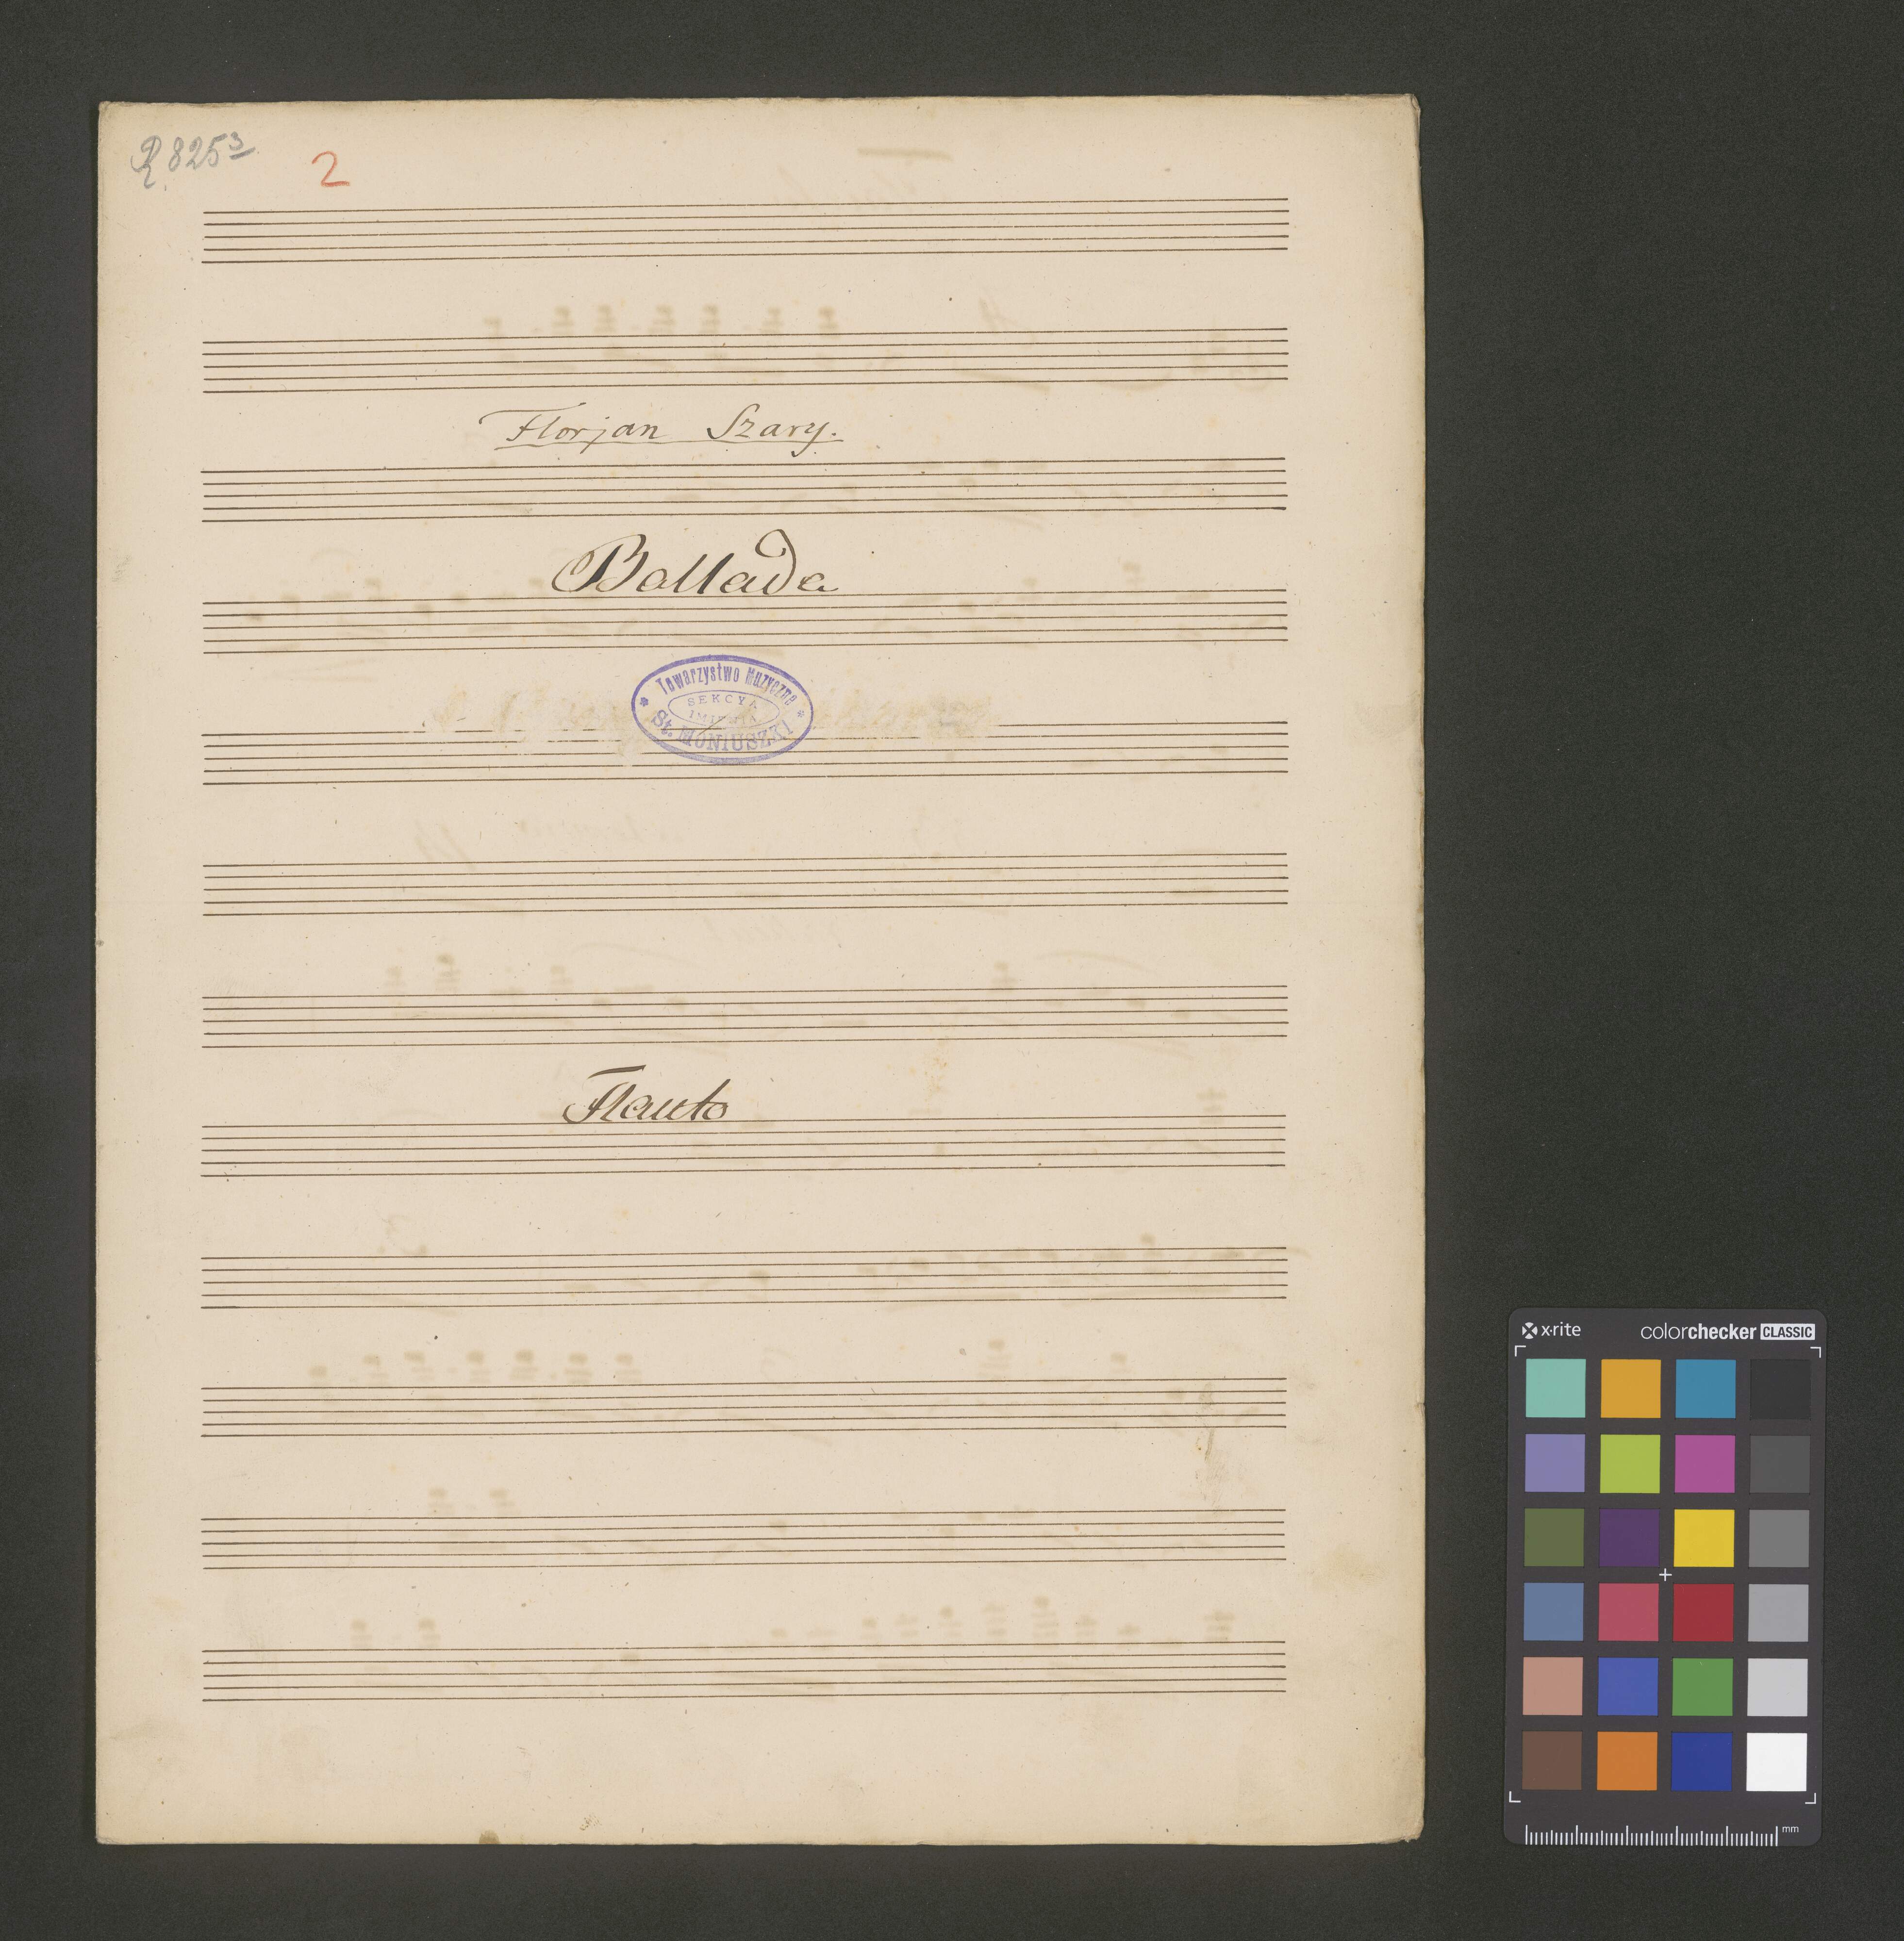 R 825³
2
Florjan Szary.
Ballada
Towarzystwo Muzyczne
SEKCYA
IMIENIA
St. MONIUSZKI
Flauto
x·rite colorchecker CLASSIC
mm